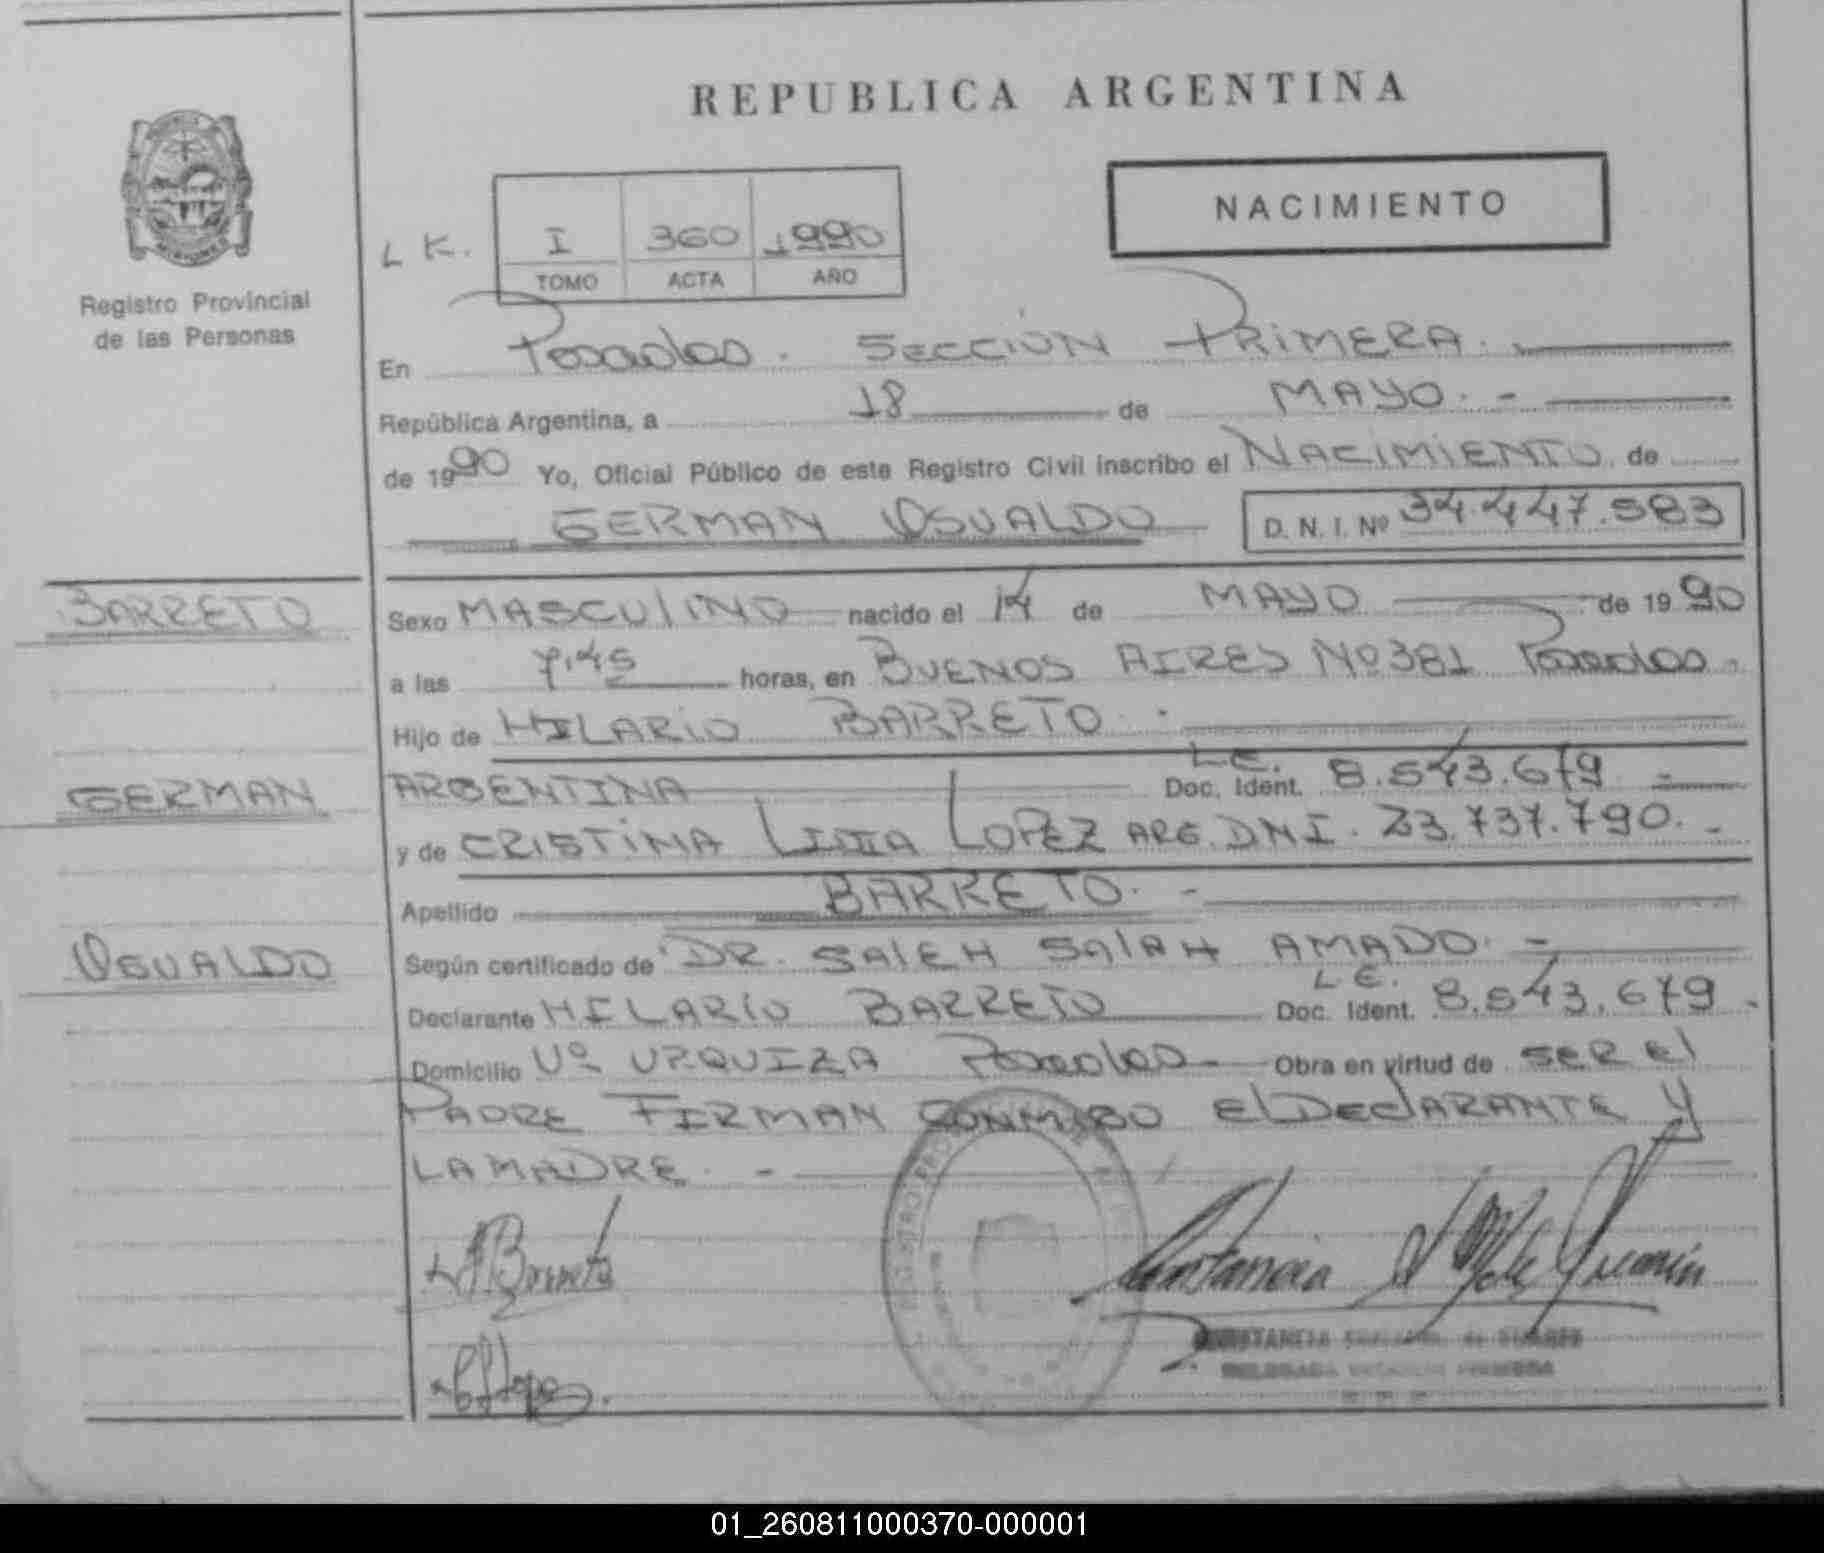 REPUBLICA ARGENTINA
NACIMIENTO
Registro Provincial
de las Personas
L K. I 360 1990
TOMO ACTA AÑO
En Posadas. SECCION PRIMERA.
República Argentina, a 18 de MAYO. -
de 1990 Yo, Oficial Público de este Registro Civil inscribo el NACIMIENTO de
GERMAN OSVALDO D. N. I. Nº 34.447.583
BARRETO
GERMAN
OSVALDO
Sexo MASCULINO nacido el 14 de MAYO de 1990
a las 7.45 horas, en BUENOS AIRES Nº 381 Posadas.
Hijo de HILARIO BARRETO.
ARGENTINA L.E. Doc. Ident. 8.543.679 -
y de CRISTINA LIDIA LOPEZ ARG. DNI. 23.737.790. -
Apellido BARRETO. -
Según certificado de DR. SALEH SALAH AMADO. -
Declarante HILARIO BARRETO L.E. Doc. Ident. 8.543.679.
Domicilio Vº URQUIZA Posadas - Obra en virtud de SER El
PADRE FIRMAN CONMIGO El DEClARANTE Y
LA MADRE. -
Barreto
Lopez
Constancia
01_260811000370-000001